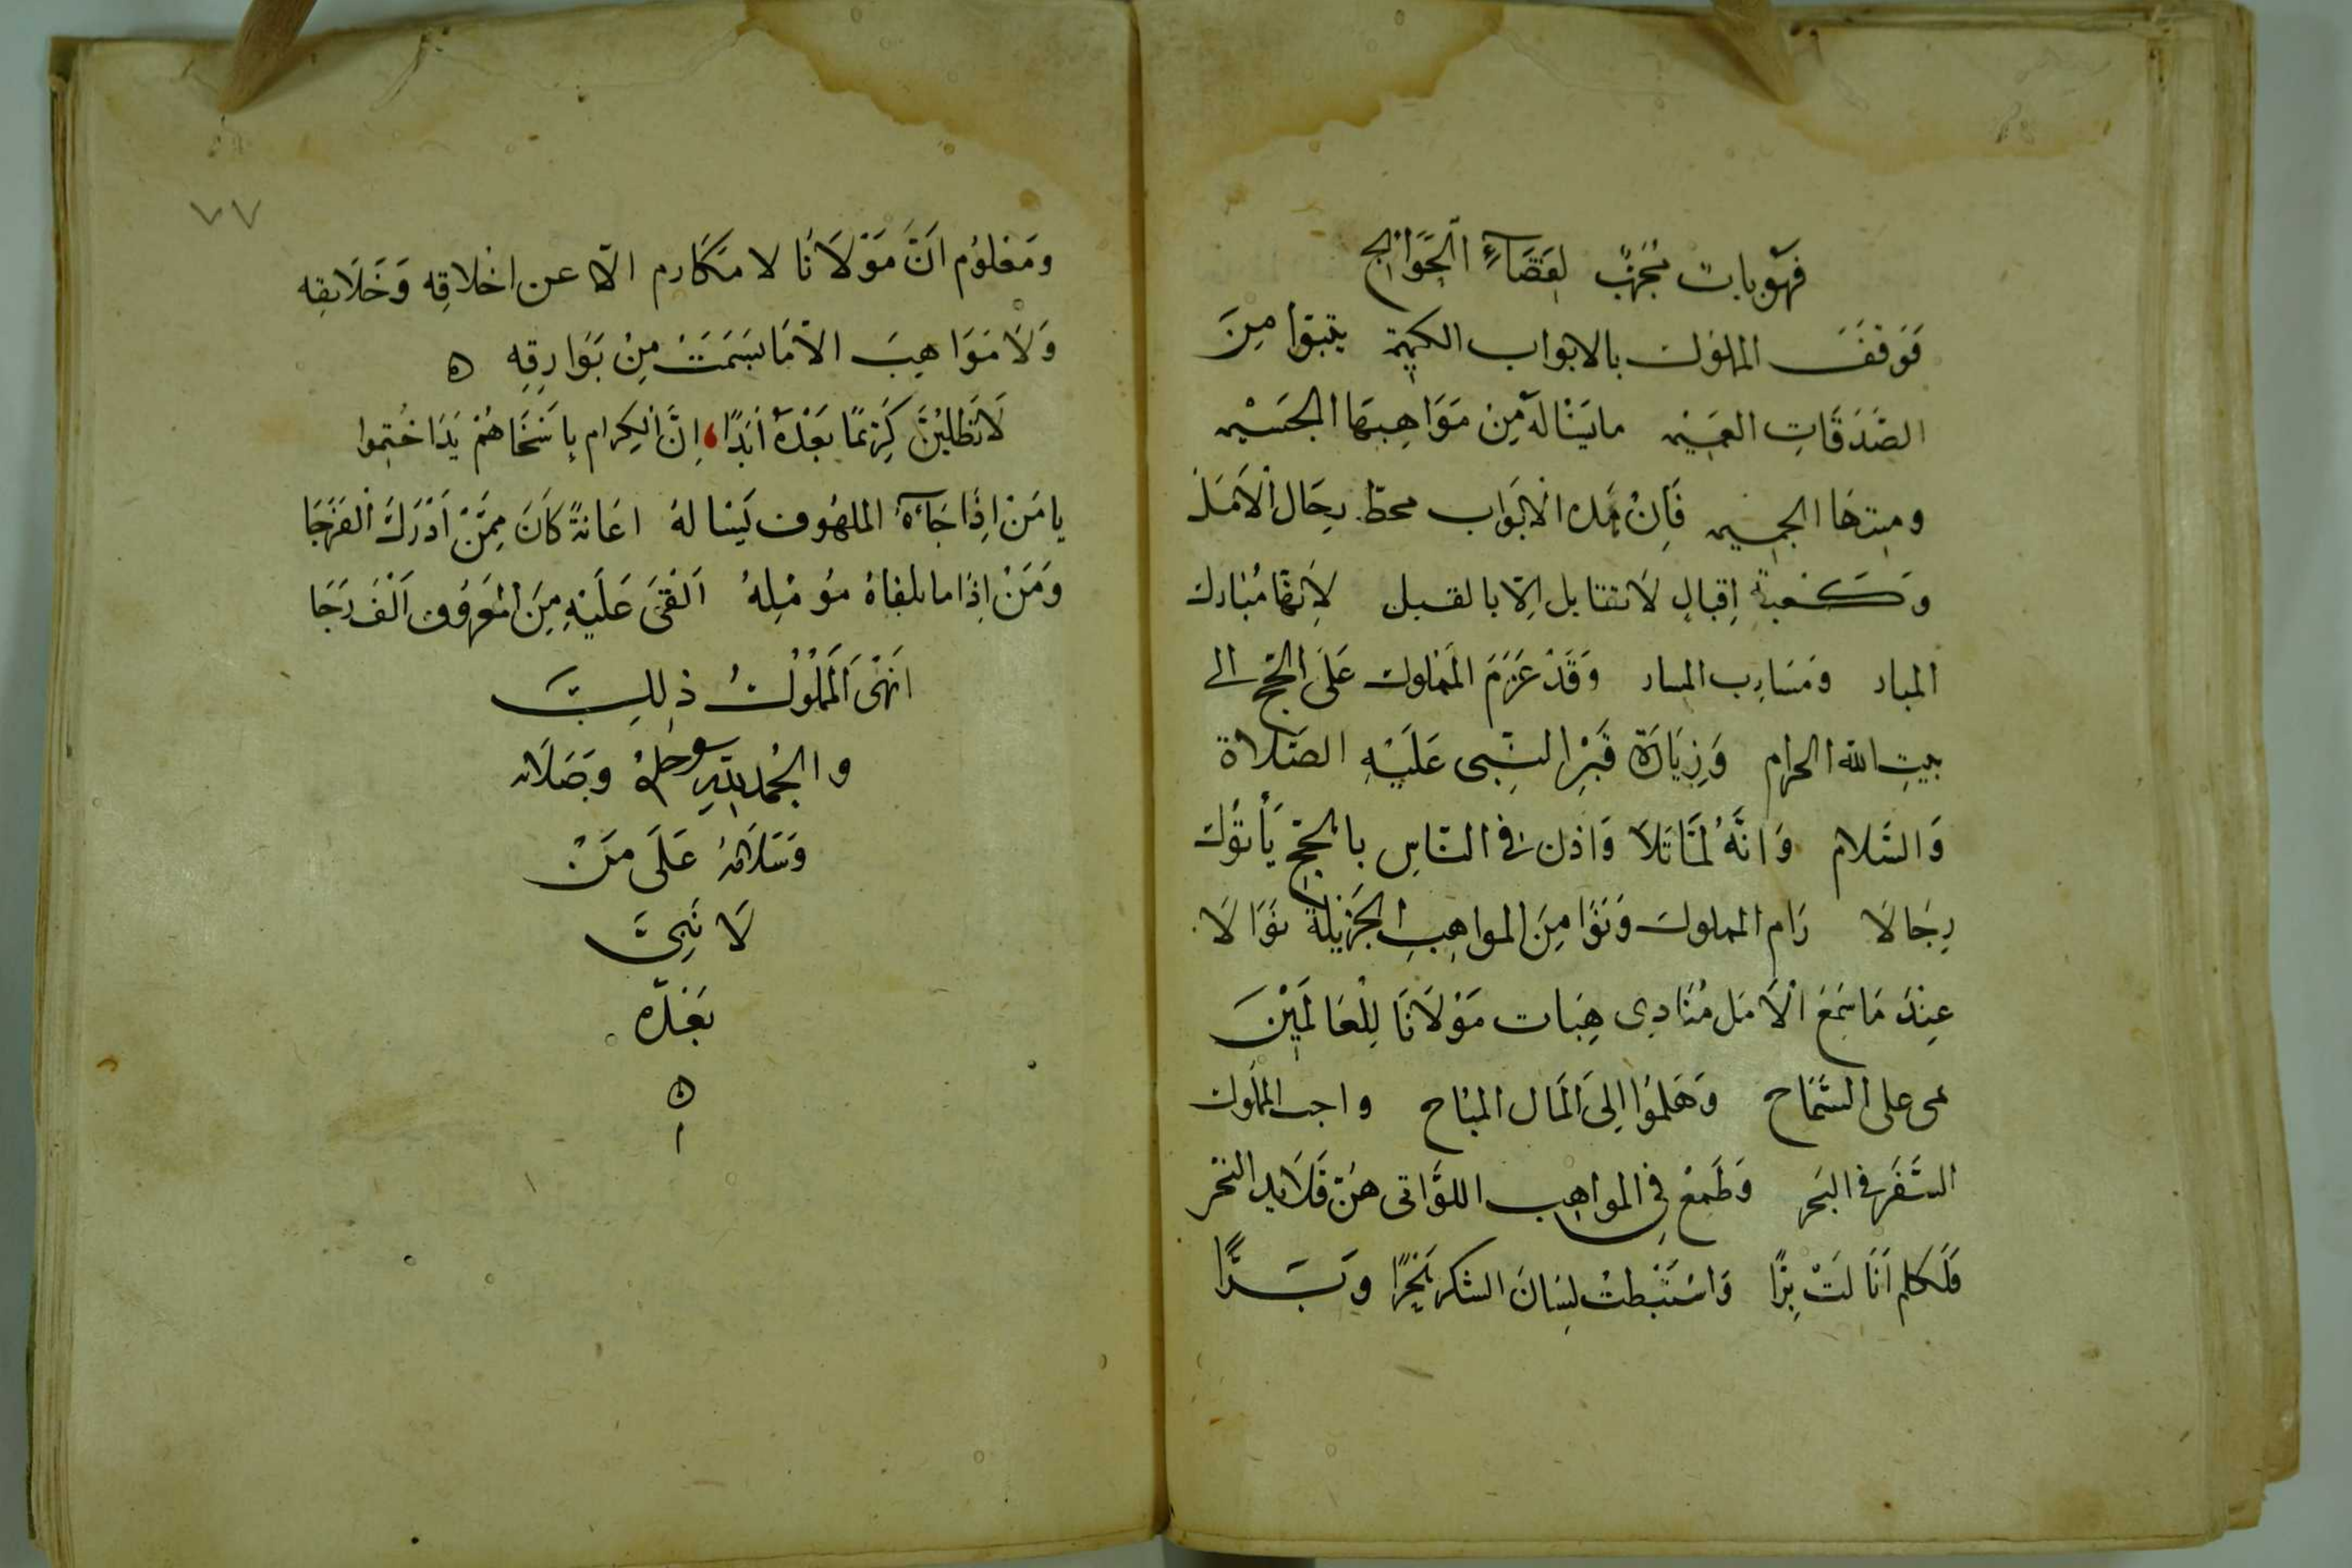 فَهْوَ بابٌ مُجَرَّبٌ لِقَضَاءِ الحَوَائِجِ
فَوَقَفَ المملوك بالابواب الكريمة يتبوا مِنَ
الصَّدَقَاتِ العَمِيْمه ما يَنَالَهُ مِنْ مَوَاهِبِهَا الجَسْيمه
ومِنَحِهَا الجميمه فَاِنْ هَذه الأَبْوَاب محطّ رِحَال الأَمَل
وَكَعْبَةُ اِقبالٍ لَا تقابل اِلّا بالقبل لِأَنَّهَا مُبَارك
المبار وَمَسَارِب المسار وَقَدْ عَزَمَ المَمْلوك عَلَى الحَجّ الى
بيتِ الله الحرام وَزِيَارَة قَبْرِ النَّبِى عَلَيْهِ الصَّلاة
وَالسَّلام وَانَّهُ لَمَّا تَلَا وَاذن فى النّاسِ بالحجّ يَأتوُك
رِجَالَا رَام المملوك وَنَوَا مِنَ المواهِبِ الجَزيْلة نَوَالَا
عِنْدَ مَا سَمِعَ الْأَمَل مُنَادِى هِبَات مَوْلَانَا لِلْعَالَمِيْنَ
حى على السَّمَاح وَهَلمُوا اِلَى الْمَال المبَاح واحب المملوك
السَّفَر فى البَحر وَطَمِعَ فِى المواهِب اللوَّاتى هنّ قَلَايد النّحْر
فَلَكَم اَنَالَتْ بِرًّا وَاسْتَنْبَطتْ لِسَانَ الشكر بَحْرًا وَبَرًّا
٧٧
وَمَعْلوُم انَّ مَوْلَانَا لا مَكَارِم الّا عن اخْلاقِه وَخَلَايقِه
وَلَا مَوَاهِبَ الّا مَا بَسَمَتْ مِنْ بَوَارِقِه ه
لَا تَطْلُبَنَّ كَرِيْمًا بَعْدَهُ أَبَدًا، اِنَّ الْكِرَام بِاَسْخَاهُمْ يَدًا خُتِموا
يا مَنْ اِذَا جَاءَهُ الملهُوف يَسْالهُ اعَانةً كَانَ مِمَّنْ اَدْرَكَ الْفَرَجَا
وَمَنْ اِذَا ما تلقاهُ مُؤَمِّلهُ اَلْقَى عَلَيْهِ مِنَ المَعرُوف اَلْف رَجَا
اَنْهَى المَمْلُوْكُ ذلِكَ
والحمْد لله وحدهُ وَصَلَاته
وَسَلَامُهُ عَلَى مَنْ
لَا نَبِىَّ
بَعْدَه
ه
ا